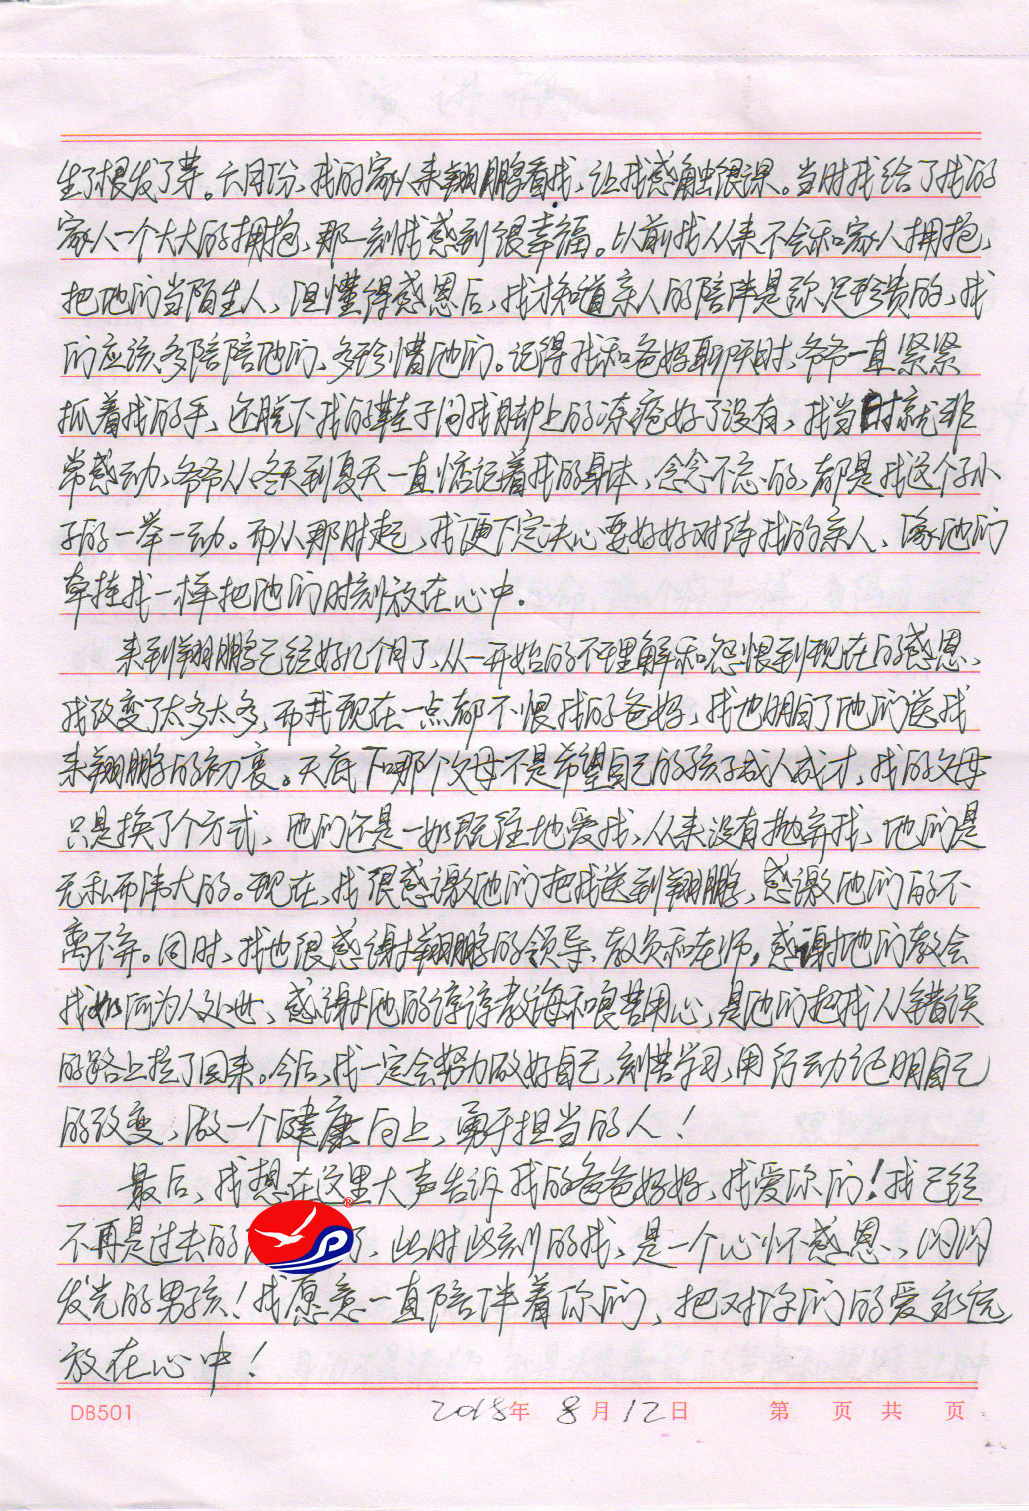 生了根发了芽。六月份,我的家人来翔鹏看我,让我感触很深。当时我给了我的
家人一个大大的拥抱,那一刻我感到很幸福。以前我从来不会和家人拥抱,
把他们当陌生人,但懂得感恩后,我才知道亲人的陪伴是弥足珍贵的,我
们应该多陪陪他们,多珍惜他们。记得我和爸妈聊天时,爷爷一直紧紧
抓着我的手,还脱下我的鞋子问我脚上的冻疮好了没有,我当时就非
常感动,爷爷从冬天到夏天一直惦记着我的身体,念念不忘的,都是我这个孙小
子的一举一动。而从那时起,我便下定决心要好好对待我的亲人,像他们
牵挂我一样把他们时刻放在心中.
来到翔鹏已经好几个月了,从一开始的不理解和怨恨到现在的感恩,
我改变了太多太多,而我现在一点都不恨我的爸妈,我也明白了他们送我
来翔鹏的初衷。天底下哪个父母不是希望自己的孩子成人成才,我的父母
只是换了个方式,他们还是一如既往地爱我,从来没有抛弃我,他们是
无私而伟大的。现在,我很感激他们把我送到翔鹏,感激他们的不
离不弃。同时,我也很感谢翔鹏的领导、教员和老师,感谢他们教会
我如何为人处世,感谢他的谆谆教诲和良苦用心,是他们把我从错误
的路上拉了回来。今后,我一定会努力做好自己,刻苦学习,用行动证明自己
的改变,做一个健康向上,勇于担当的人!
最后,我想在这里大声告诉我的爸爸妈妈,我爱你们!我已经
不再是过去的 了,此时此刻的我,是一个心怀感恩、闪闪
发光的男孩!我愿意一直陪伴着你们,把对你们的爱永远
放在心中!
DB501 2018年 8月12日 第 页 共 页